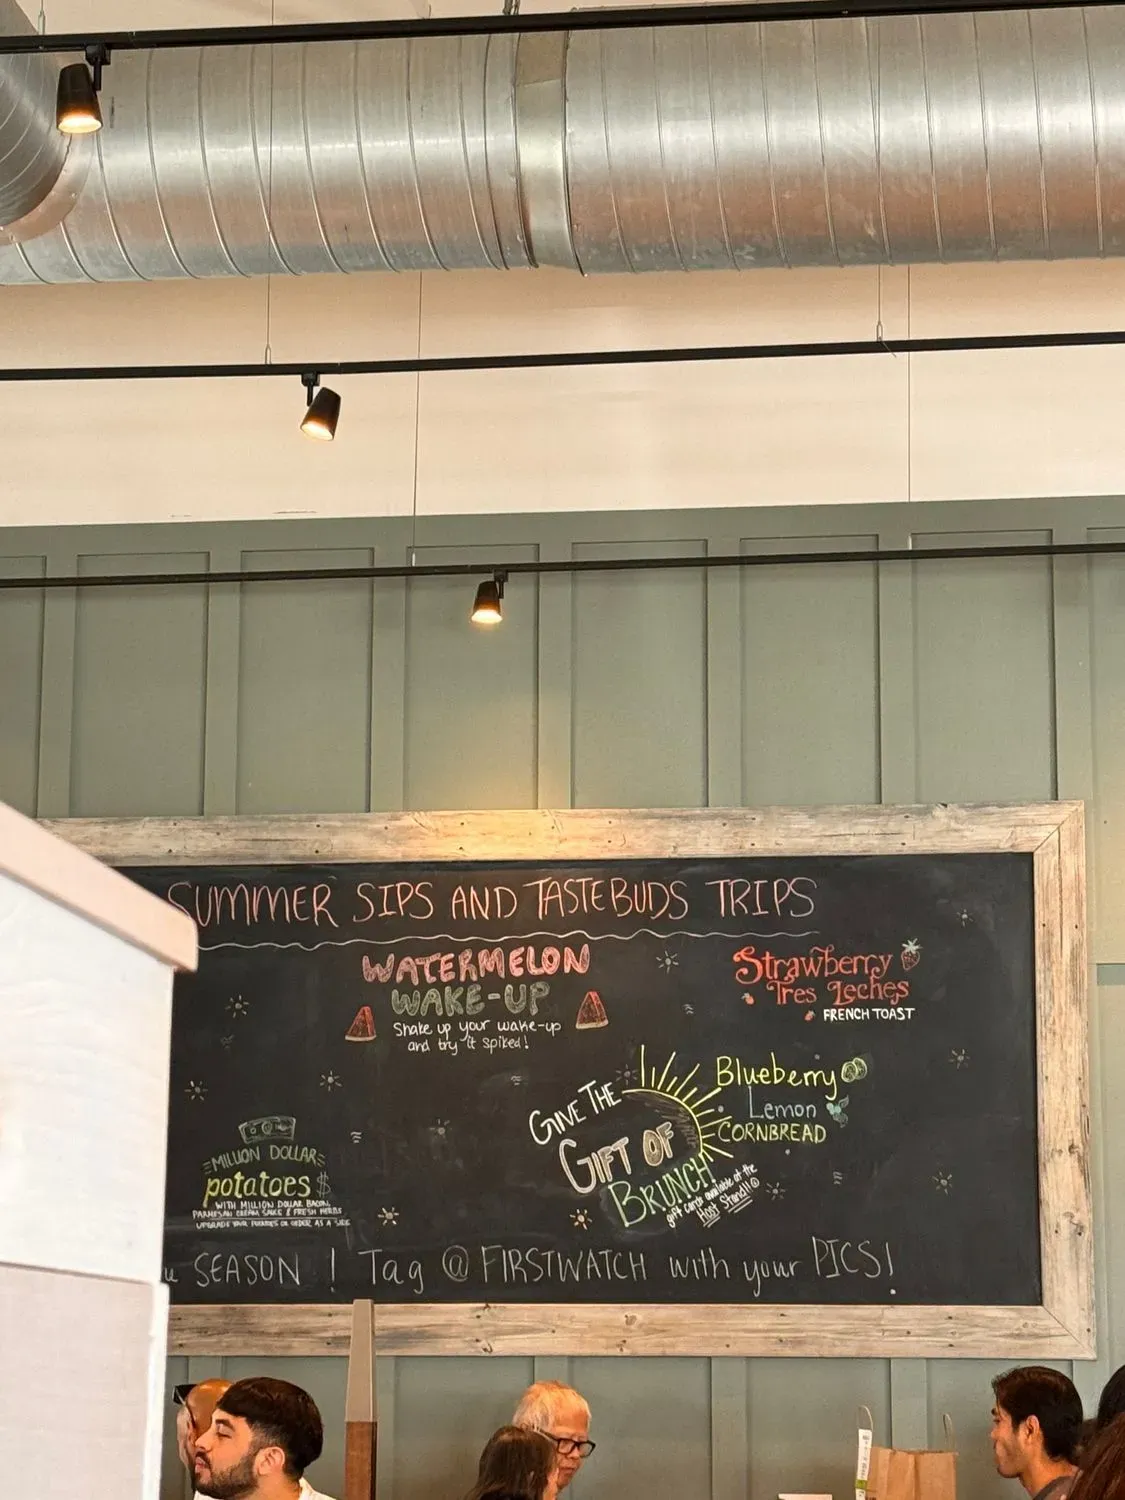 SUMMER SIPS AND TASTEBUDS TRIPS
WATERMELON
WAKE-UP
Shake up your wake-up
and try it spiked!
Strawberry
Tres Leches
FRENCH TOAST
GIVE THE
GIFT OF
BRUNCH
gift cards available at the
Host Stand!!
Blueberry
Lemon
CORNBREAD
MILLION DOLLAR
potatoes $
WITH MILLION DOLLAR BACON,
PARMESAN CREAM SAUCE & FRESH HERBS
UPGRADE YOUR POTATOES OR ORDER AS A SIDE
u SEASON ! Tag @ FIRSTWATCH with your PICS!